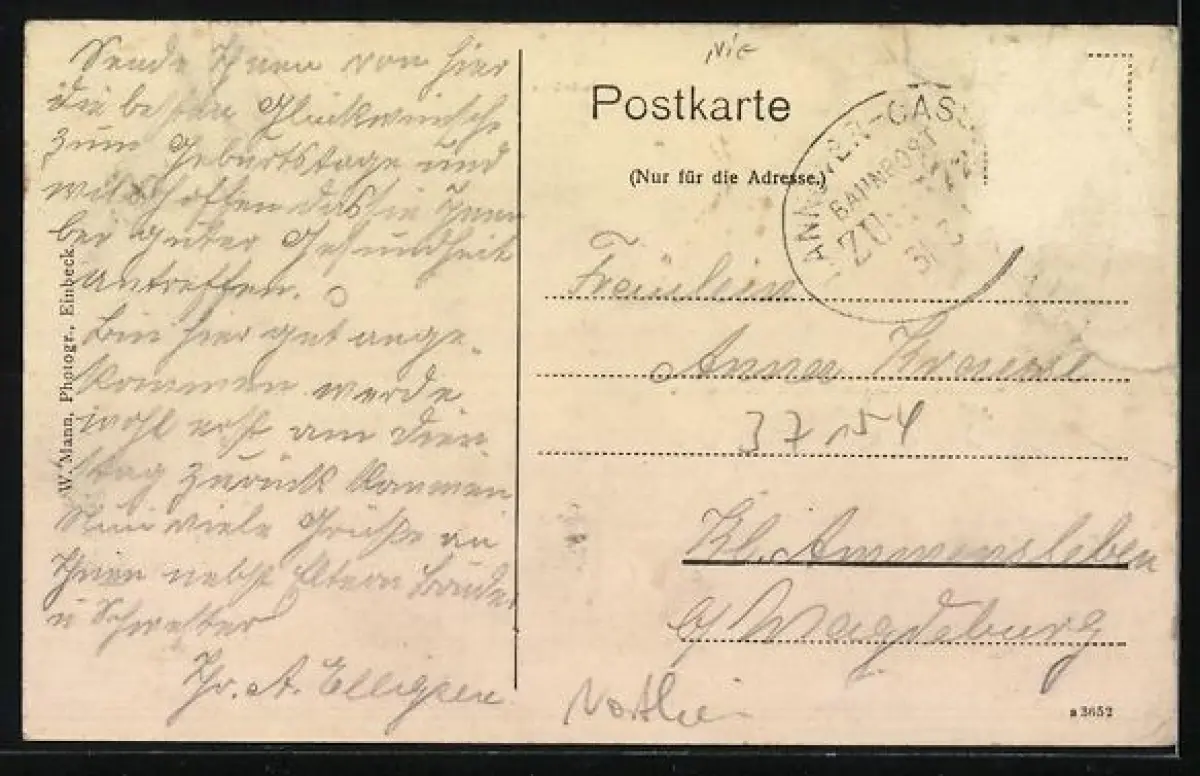 Sende Ihnen von hier
die besten Glückwünsche
zum Geburtstage und
will hoffen das sie Ihnen
bei guter Gesundheit
antreffen.
Bin hier gut ange-
kommen werde
wohl erst am Diens-
tag zurück kommen
Nun viele Grüße an
Ihnen nebst Eltern Bruder
u Schwester
A.
W. Mann, Photogr., Einbeck.
Postkarte
(Nur für die Adresse.)
ANNOVER-CASS
BAHNPOST
ZU
Fräulein
Anna Krause
37154
Kl. Ammensleben
b/ Magdeburg
Northei
a 3652